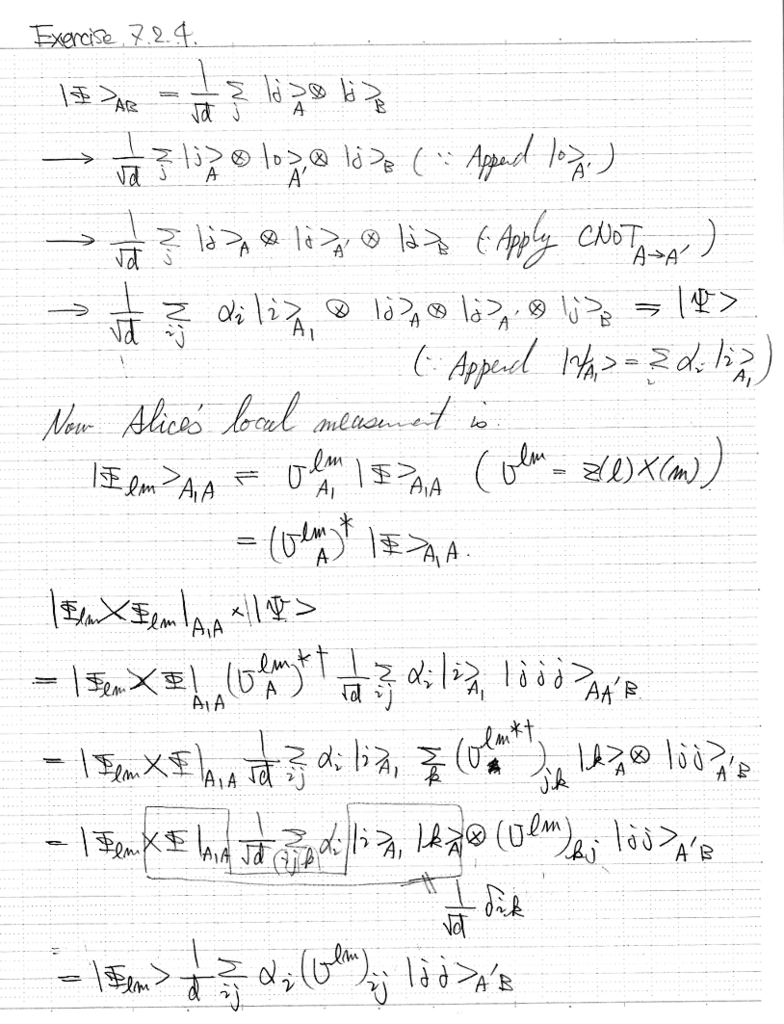 Exercise 7.2.4.
|Φ>_AB = 1/√d Σ_j |j>_A ⊗ |j>_B
→ 1/√d Σ_j |j>_A ⊗ |0>_A' ⊗ |j>_B (∵ Append |0>_A')
→ 1/√d Σ_j |j>_A ⊗ |j>_A' ⊗ |j>_B (∵ Apply CNOT_A→A')
→ 1/√d Σ_ij α_i |i>_A₁ ⊗ |j>_A ⊗ |j>_A' ⊗ |j>_B = |Ψ>
(∵ Append |ψ_A₁> = Σ_i α_i |i>_A₁)
Now Alice's local measurement is
|Φ_lm>_A₁A = U^lm_A₁ |Φ>_A₁A (U^lm = Z(l)X(m))
= (U^lm_A)^* |Φ>_A₁A.
|Φ_lm><Φ_lm|_A₁A × |Ψ>
= |Φ_lm><Φ|_A₁A (U^lm_A)^*† 1/√d Σ_ij α_i |i>_A₁ |jjj>_AA'B
= |Φ_lm><Φ|_A₁A 1/√d Σ_ij α_i |i>_A₁ Σ_k (U^lm*†)_jk |k>_A ⊗ |jj>_A'B
= |Φ_lm><Φ|_A₁A 1/√d Σ_(ijk) α_i |i>_A₁ |k>_A ⊗ (U^lm)_kj |jj>_A'B
= 1/√d δ_ik
= |Φ_lm> 1/d Σ_ij α_i (U^lm)_ij |jj>_A'B